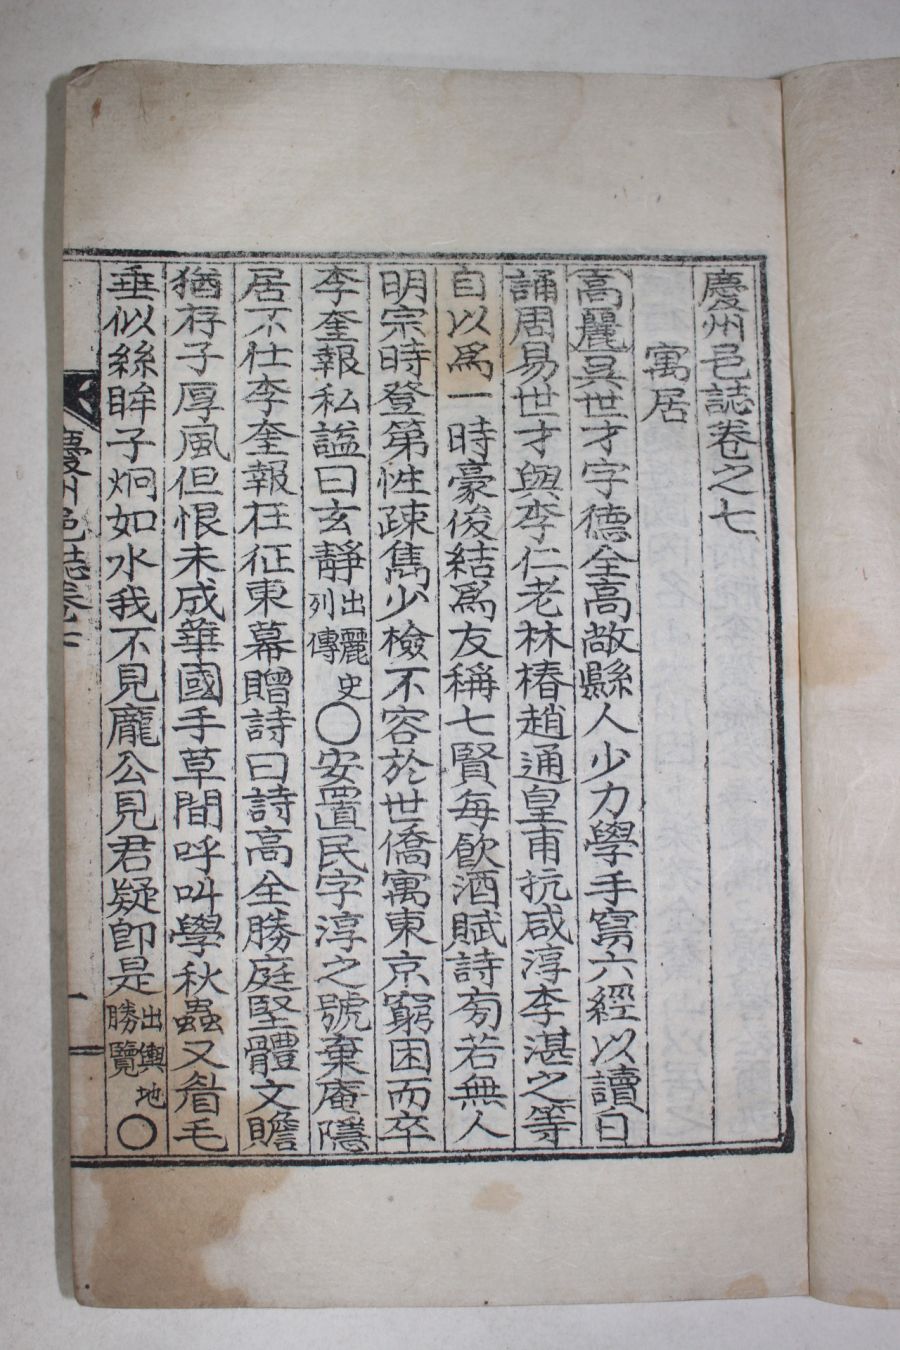 慶州邑誌卷之七
寓居
高麗吳世才字德全高敞縣人少力學手寫六經以讀日
誦周易世才與李仁老林椿趙通皇甫抗咸淳李湛之等
自以爲一時豪俊結爲友稱七賢每飮酒賦詩旁若無人
明宗時登第性疎雋少檢不容於世僑寓東京窮困而卒
李奎報私諡曰玄靜出麗史列傳〇安置民字淳之號棄庵隱
居不仕李奎報在征東幕贈詩曰詩高全勝庭堅體文瞻
猶存子厚風但恨未成華國手草間呼叫學秋蟲又眉毛
垂似絲眸子炯如水我不見龐公見君疑卽是出輿地勝覽〇
慶州邑誌卷七
一